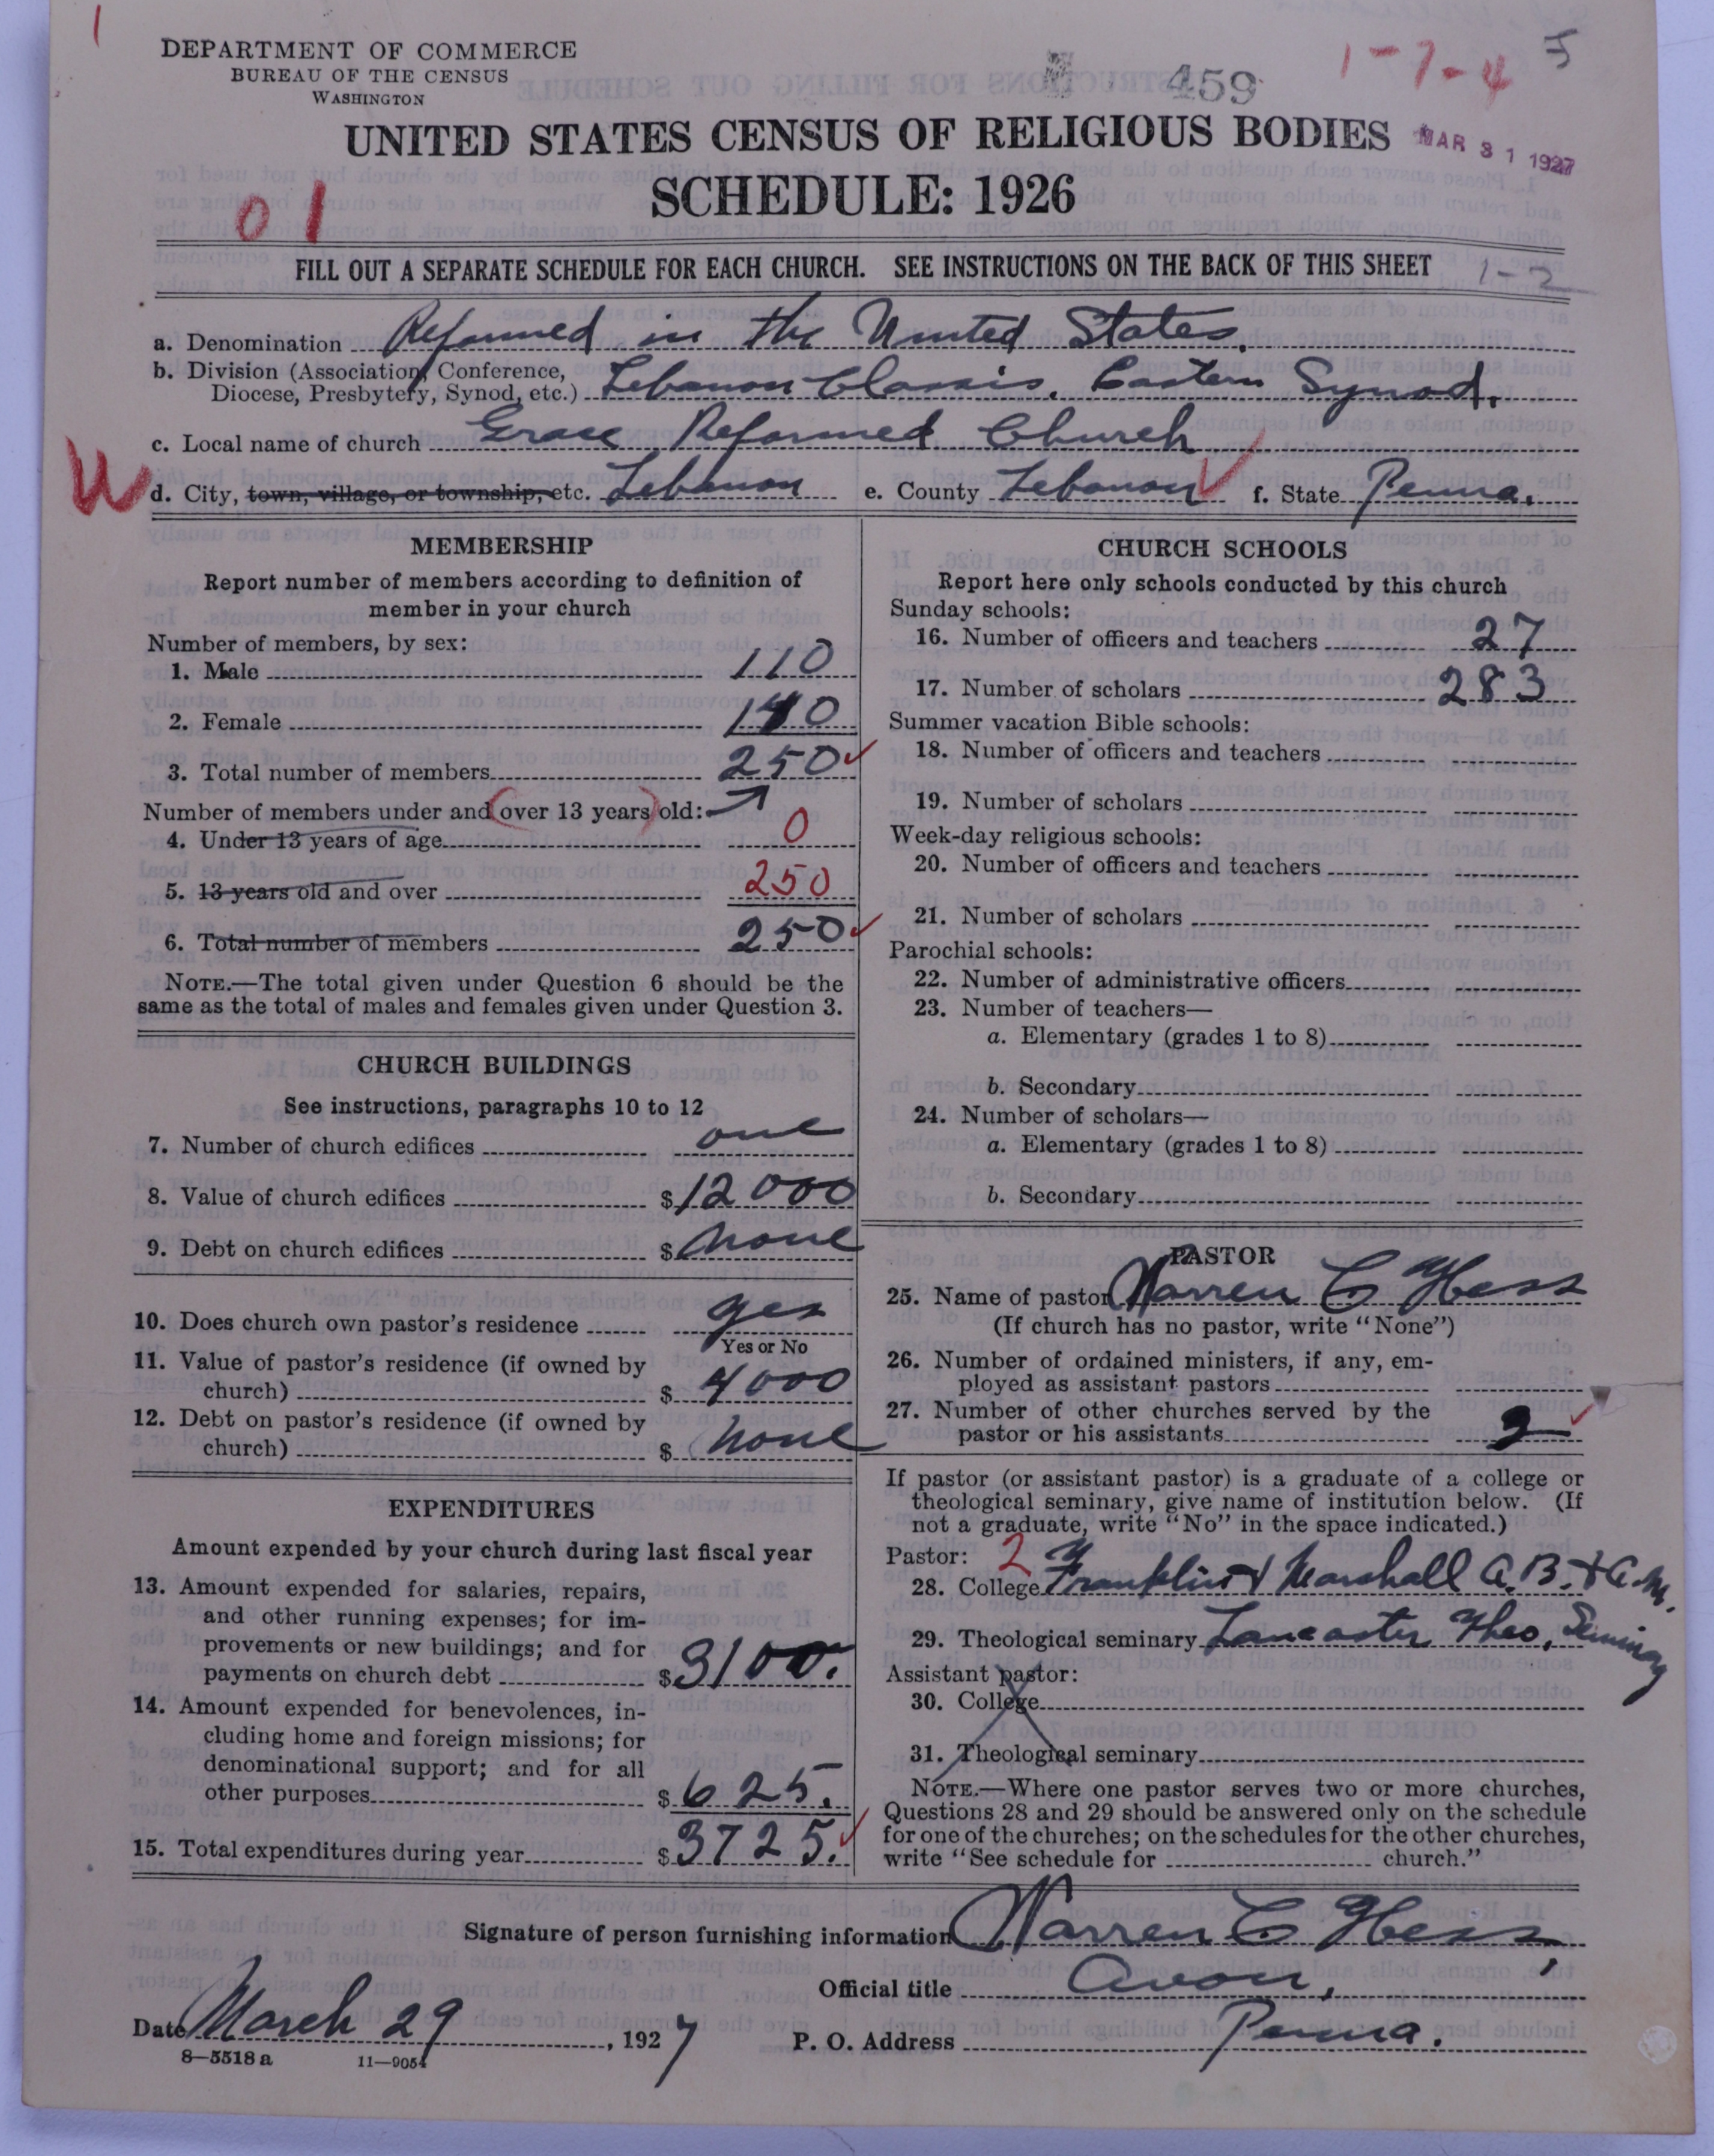 1
DEPARTMENT OF COMMERCE
BUREAU OF THE CENSUS
WASHINGTON
459
1-7-4
5
UNITED STATES CENSUS OF RELIGIOUS BODIES
MAR 31 1927
SCHEDULE: 1926
01
FILL OUT A SEPARATE SCHEDULE FOR EACH CHURCH. SEE INSTRUCTIONS ON THE BACK OF THIS SHEET
1-2
a. Denomination Reformed in the United States.
b. Division (Association, Conference,
Diocese, Presbytery, Synod, etc.) Lebanon Classis. Eastern Synod.
c. Local name of church Grace Reformed Church
W
d. City, town, village, or township, etc. Lebanon e. County Lebanon f. State Penna.
MEMBERSHIP
Report number of members according to definition of
member in your church
Number of members, by sex:
1. Male 110
2. Female 140
3. Total number of members 250
Number of members under and (over 13 years) old:
4. Under 13 years of age 0
5. 13 years old and over 250
6. Total number of members 250
NOTE.—The total given under Question 6 should be the
same as the total of males and females given under Question 3.
CHURCH BUILDINGS
See instructions, paragraphs 10 to 12
7. Number of church edifices one
8. Value of church edifices $12000
9. Debt on church edifices $ none
10. Does church own pastor's residence yes
Yes or No
11. Value of pastor's residence (if owned by
church) $ 4000
12. Debt on pastor's residence (if owned by
church) $ none
EXPENDITURES
Amount expended by your church during last fiscal year
13. Amount expended for salaries, repairs,
and other running expenses; for im-
provements or new buildings; and for
payments on church debt $3100.
14. Amount expended for benevolences, in-
cluding home and foreign missions; for
denominational support; and for all
other purposes $625.
15. Total expenditures during year $3725.
CHURCH SCHOOLS
Report here only schools conducted by this church
Sunday schools:
16. Number of officers and teachers 27
17. Number of scholars 283
Summer vacation Bible schools:
18. Number of officers and teachers
19. Number of scholars
Week-day religious schools:
20. Number of officers and teachers
21. Number of scholars
Parochial schools:
22. Number of administrative officers
23. Number of teachers—
a. Elementary (grades 1 to 8)
b. Secondary
24. Number of scholars—
a. Elementary (grades 1 to 8)
b. Secondary
PASTOR
25. Name of pastor Warren C Hess
(If church has no pastor, write "None")
26. Number of ordained ministers, if any, em-
ployed as assistant pastors
27. Number of other churches served by the
pastor or his assistants 2
If pastor (or assistant pastor) is a graduate of a college or
theological seminary, give name of institution below. (If
not a graduate, write "No" in the space indicated.)
Pastor: 2
28. College Franklin & Marshall A.B. & A.M.
29. Theological seminary Lancaster Theo. Seminary
Assistant pastor:
30. College
31. Theological seminary
NOTE.—Where one pastor serves two or more churches,
Questions 28 and 29 should be answered only on the schedule
for one of the churches; on the schedules for the other churches,
write "See schedule for church."
Signature of person furnishing information Warren C Hess,
Official title Avon,
Date March 29, 1927 P. O. Address Penna.
8—5518 a 11—9054